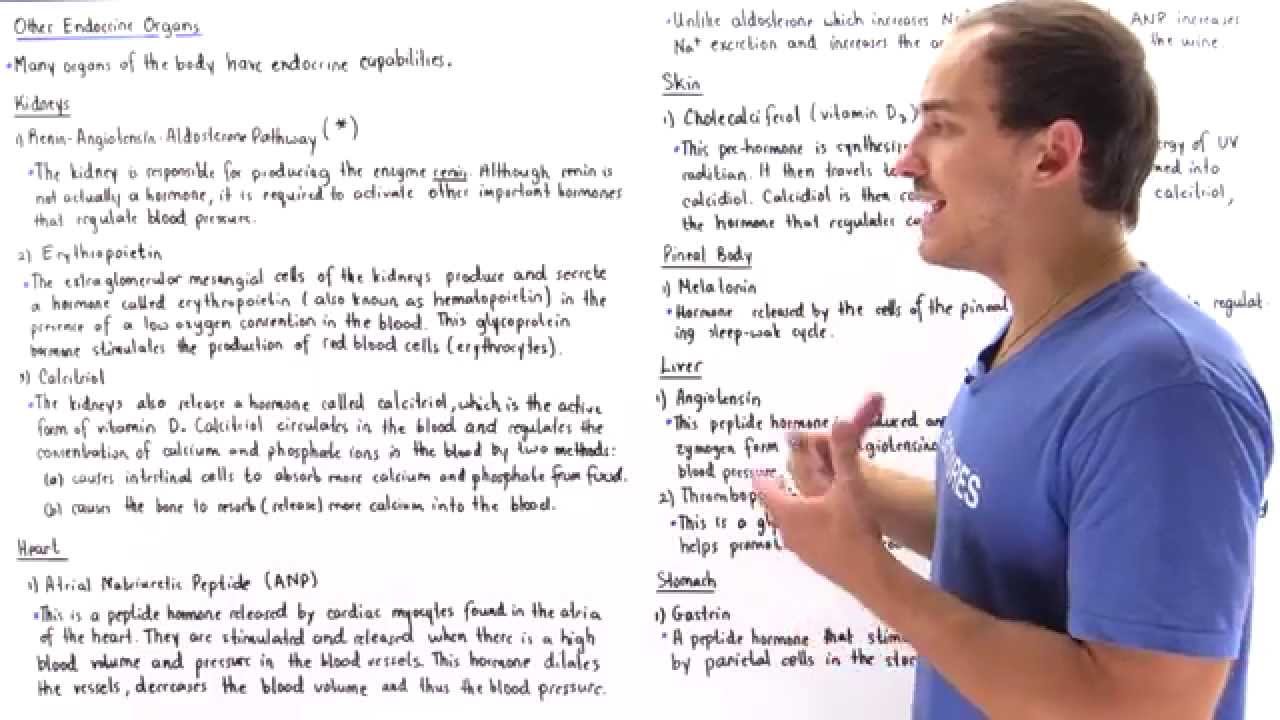 Other Endocrine Organs
•Many organs of the body have endocrine capabilities.
Kidneys
1) Renin-Angiotensin-Aldosterone Pathway (*)
•The kidney is responsible for producing the enzyme renin. Although renin is
not actually a hormone, it is required to activate other important hormones
that regulate blood pressure.
2) Erythropoietin
•The extraglomerular mesangial cells of the kidneys produce and secrete
a hormone called erythropoietin (also known as hematopoietin) in the
presence of a low oxygen concention in the blood. This glycoprotein
hormone stimulates the production of red blood cells (erythrocytes).
3) Calcitriol
•The kidneys also release a hormone called calcitriol, which is the active
form of vitamin D. Calcitriol circulates in the blood and regulates the
concentration of calcium and phosphate ions in the blood by two methods:
(a) causes intestinal cells to absorb more calcium and phosphate from food.
(b) causes the bone to resorb (release) more calcium into the blood.
Heart
1) Atrial Natriuretic Peptide (ANP)
•This is a peptide hormone released by cardiac myocytes found in the atria
of the heart. They are stimulated and released when there is a high
blood volume and pressure in the blood vessels. This hormone dilates
the vessels, decreases the blood volume and thus the blood pressure.
•Unlike aldosterone which increases Na ANP increases
Na+ excretion and increases the the urine.
Skin
1) Cholecalciferol (vitamin D3)
•This pre-hormone is of UV
radiation. It then travels into
calcidiol. Calcidiol is then calcitriol,
the hormone that regulates
Pineal Body
1) Melatonin
•Hormone released by the cells of the pineal regulat-
ing sleep-wak cycle.
Liver
1) Angiotensin
•This peptide hormone
zymogen form
blood pressure
2)
•This is a
helps
Stomach
1) Gastrin
•A peptide hormone that
by parietal cells in the